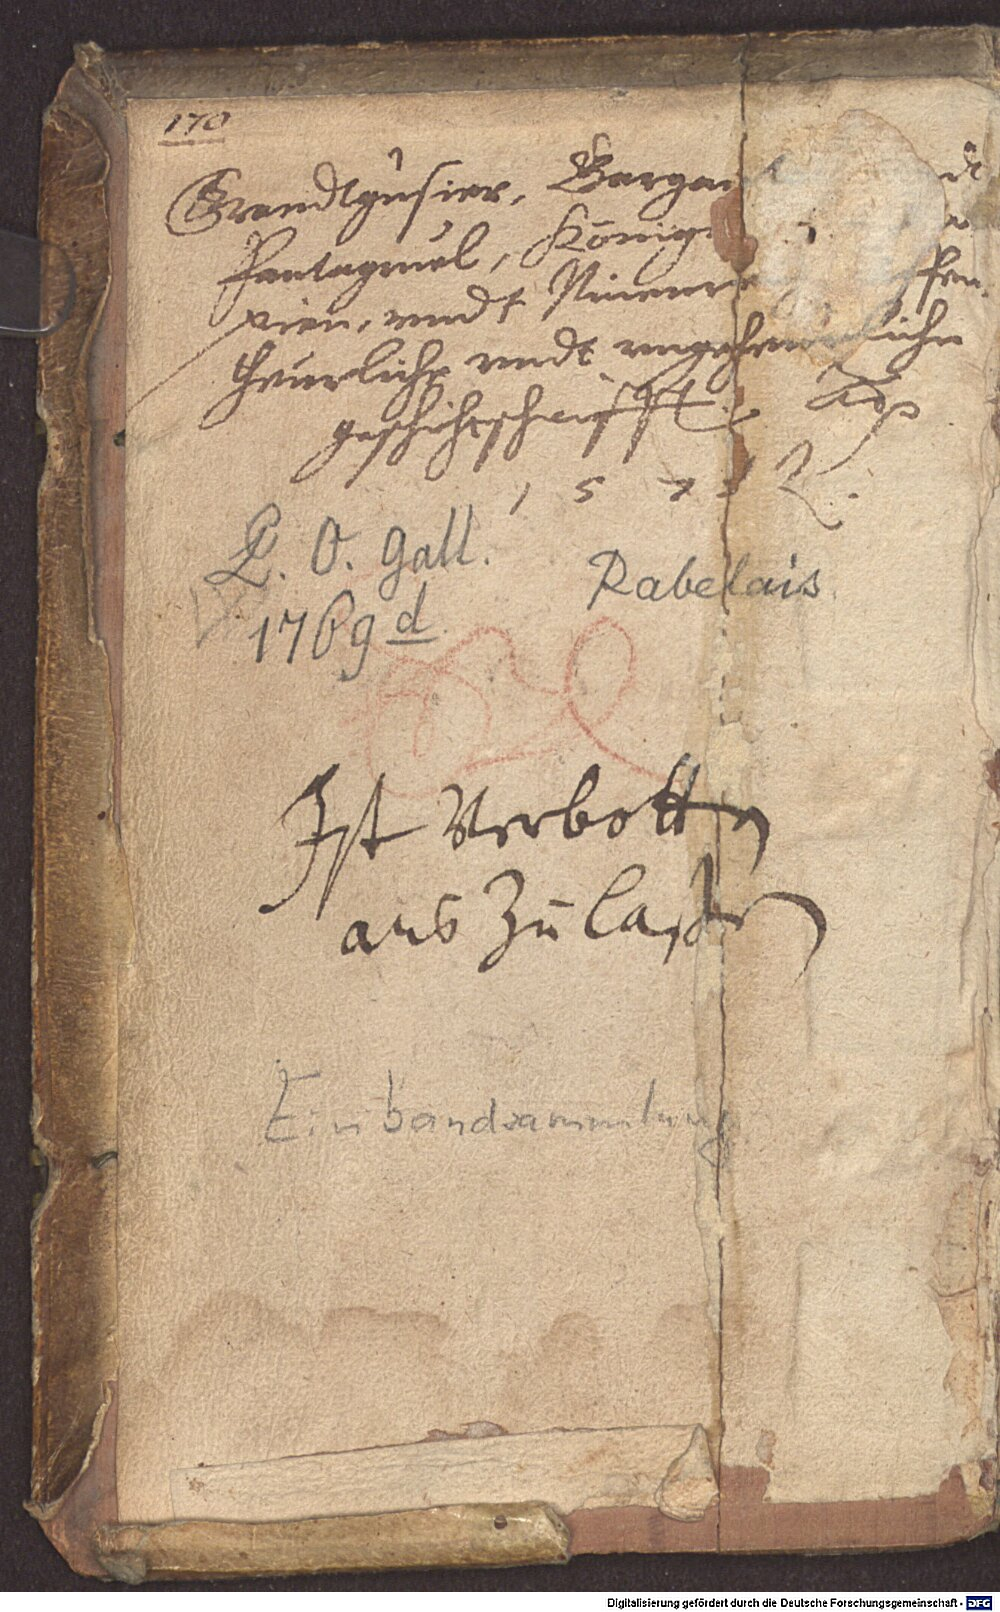 170
Grandtgusier, Gargan dt
Pantagruel, König
pien, vndt Ninenre fen
theurliche vndt vngeheurliche
geschichtschrifft.
1 5 7 2.
P. O. gall. Rabelais.
1769 d.
Ist Verbotten
aus Zu laßen
Einbandsammlung
Digitalisierung gefördert durch die Deutsche Forschungsgemeinschaft - DFG